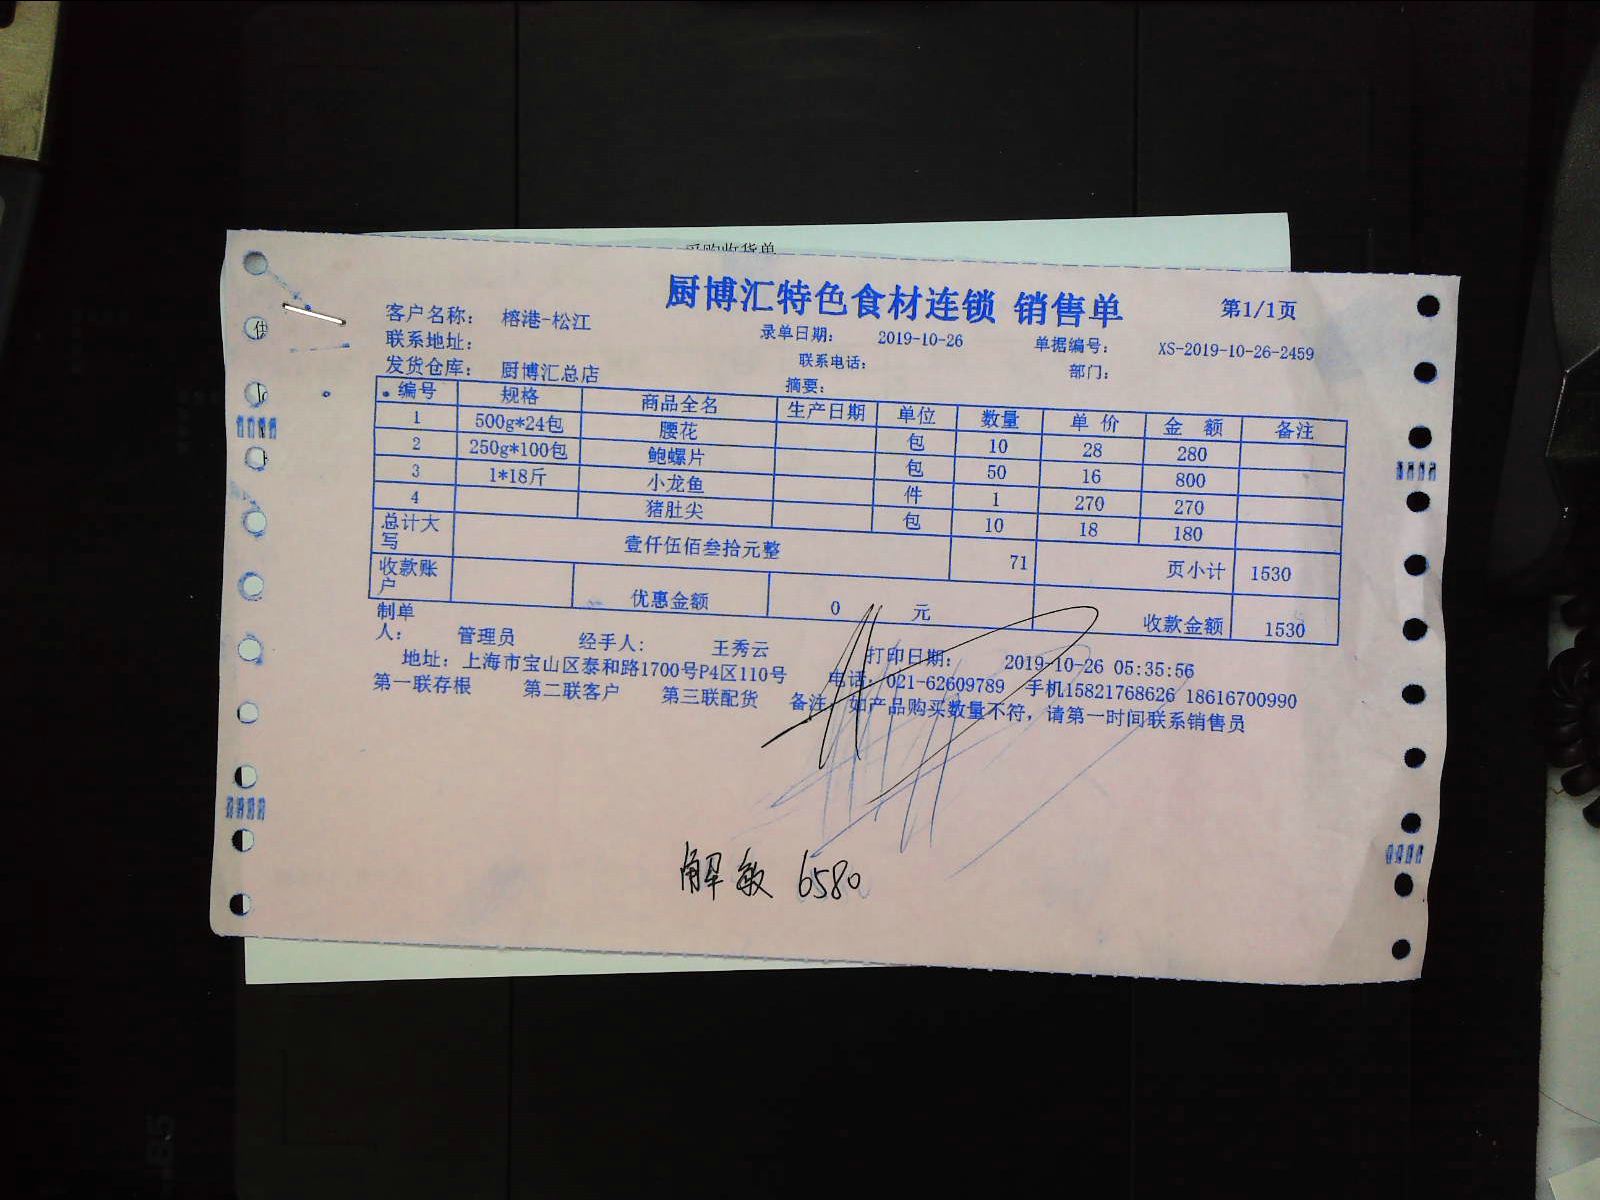 采购收货单
厨博汇特色食材连锁 销售单 第1/1页
客户名称: 榕港-松江 录单日期: 2019-10-26 单据编号: XS-2019-10-26-2459
联系地址: 联系电话: 部门:
发货仓库: 厨博汇总店 摘要:
编号 规格 商品全名 生产日期 单位 数量 单 价 金 额 备注
1 500g*24包 腰花 包 10 28 280
2 250g*100包 鲍螺片 包 50 16 800
3 1*18斤 小龙鱼 件 1 270 270
4 猪肚尖 包 10 18 180
总计大写 壹仟伍佰叁拾元整 71 页小计 1530
收款账户 优惠金额 0 元 收款金额 1530
制单人: 管理员 经手人: 王秀云 打印日期: 2019-10-26 05:35:56
地址: 上海市宝山区泰和路1700号P4区110号 电话: 021-62609789 手机15821768626 18616700990
第一联存根 第二联客户 第三联配货 备注 如产品购买数量不符, 请第一时间联系销售员
解敏 6580